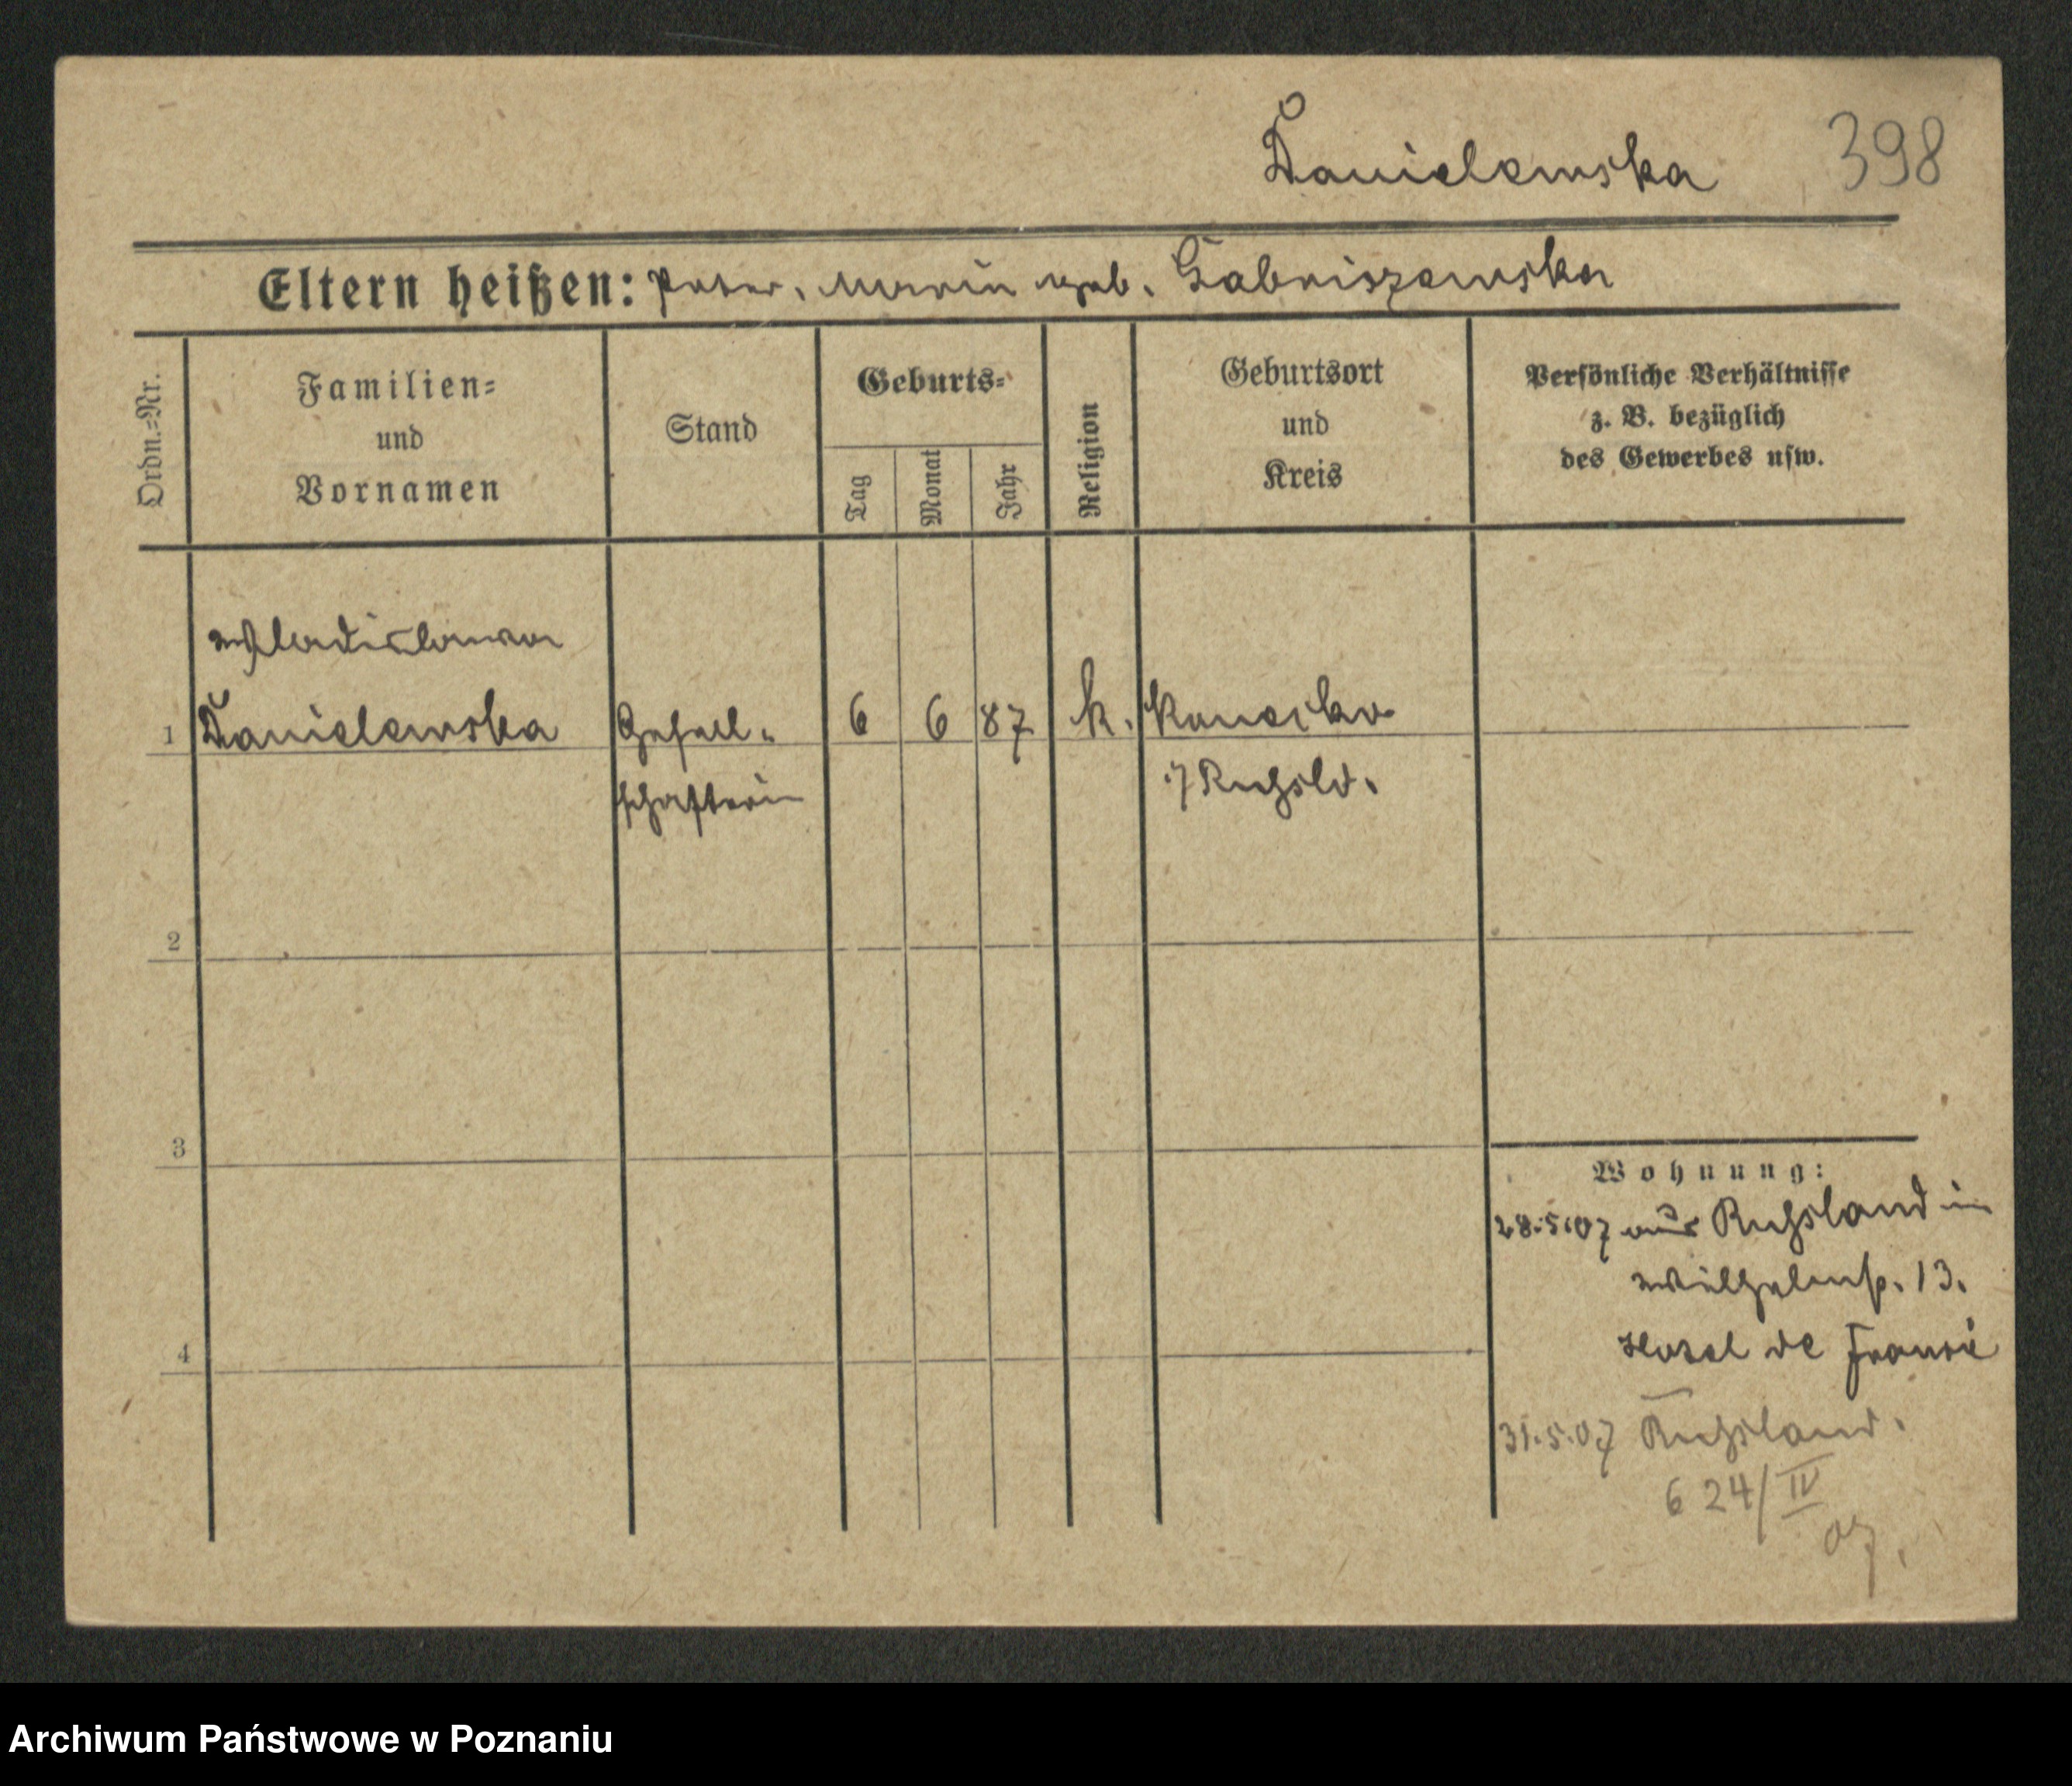 Danielewska 398
Eltern heißen: Peter, Maria geb. Gabriszewska
Ordn.-Nr.
Familien-
und
Vornamen
Stand
Geburts-
Tag
Monat
Jahr
Religion
Geburtsort
und
Kreis
Persönliche Verhältnisse
z. B. bezüglich
des Gewerbes usw.
Wladislawa
1 Danielewska Gesell- 6 6 87 k.
schafterin i/ Rußld.
2
3
4
Wohnung:
28.5.07 aus Rußland in
Wilhelmsp. 13.
Hotel de
31.5.07 Rußland.
6 24/IV
07.
Archiwum Państwowe w Poznaniu